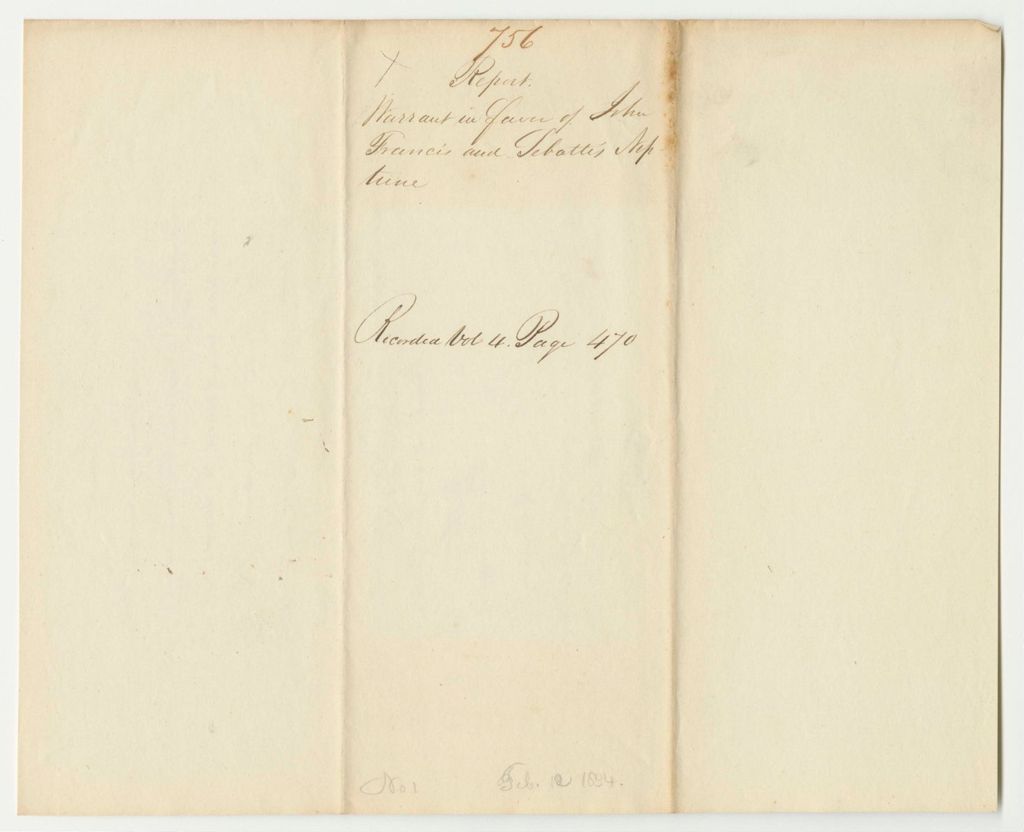 756
X Report.
Warrant in favor of John
Francis and Sebattis Nep-
tune
Recorded Vol 4. Page 470
No 1 Feb. 12 1834.